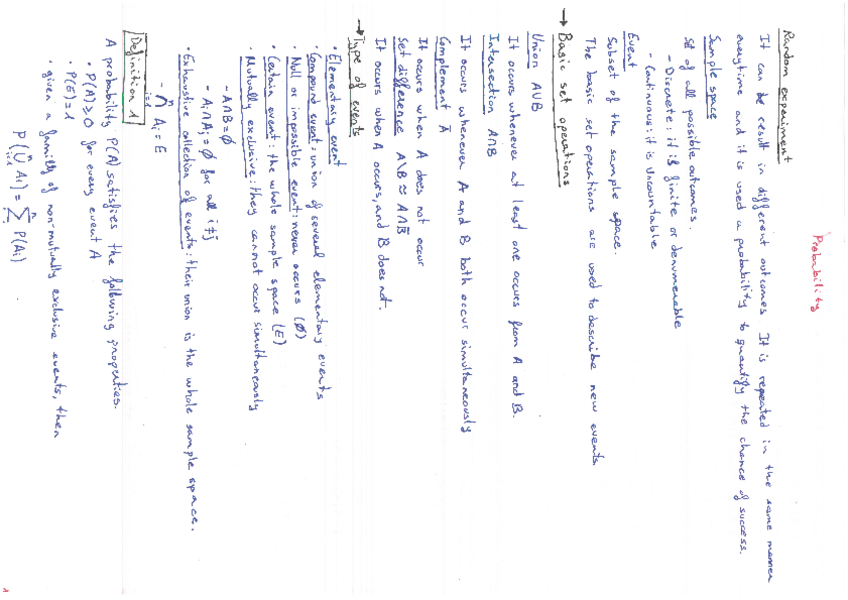 Probability
Random experiment
It can be result in different outcomes It is repeated in the same manner
everytime and it is used a probability to quantify the chance of success.
Sample space
set of all possible outcomes.
- Discrete: it is finite or denumerable
- Continuous: it is Uncountable
Event
Subset of the sample space.
The basic set operations are used to describe new events
→ Basic set operations
Union A∪B
It occurs whenever at least one occurs from A and B.
Intersection A∩B
It occurs whenever A and B both occur simultaneously
Complement Ā
It occurs when A does not occur
Set difference A\B ≈ A∩B̄
It occurs when A occurs, and B does not.
→ Type of events
• Elementary event
• Compound event: union of several elementary events
• Null or impossible event: never occurs (∅)
• Certain event: the whole sample space (E)
• Mutually exclusive: they cannot occur simultaneously
- A∩B=∅
- Ai∩Aj=∅ for all i≠j
• Exhaustive collection of events: their union is the whole sample space.
- ⋂ⁿᵢ₌₁ Ai = E
Definition 1
A probability P(A) satisfies the following properties.
• P(A)≥0 for every event A
• P(E)=1
• given a family of non-mutually exclusive events, then
P(⋃ⁿᵢ₌₁ Ai) = ∑ⁿᵢ₌₁ P(Ai)
1